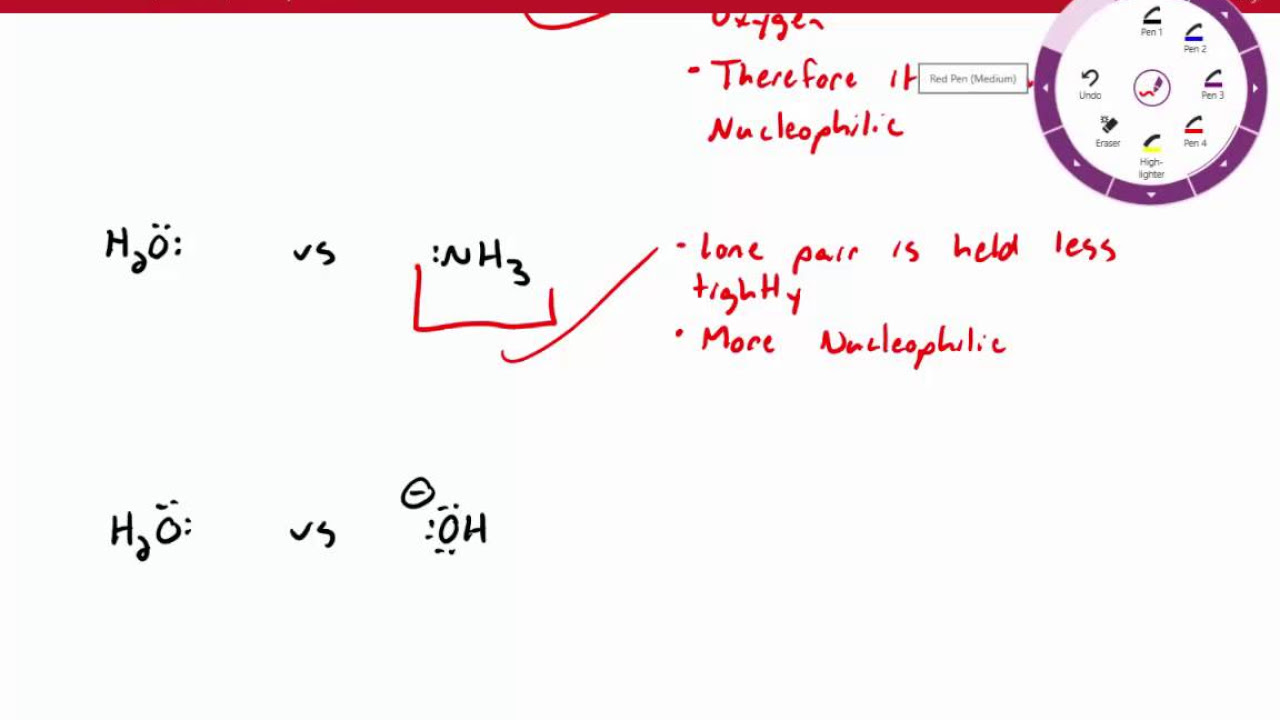 Oxygen
• Therefore it
Nucleophilic
Red Pen (Medium)
Pen 1
Pen 2
Undo
Pen 3
Eraser
Pen 4
High-
lighter
H₂Ö: vs :NH₃
• lone pair is held less
tightly
• More Nucleophilic
H₂Ö: vs ⊖:ÖH